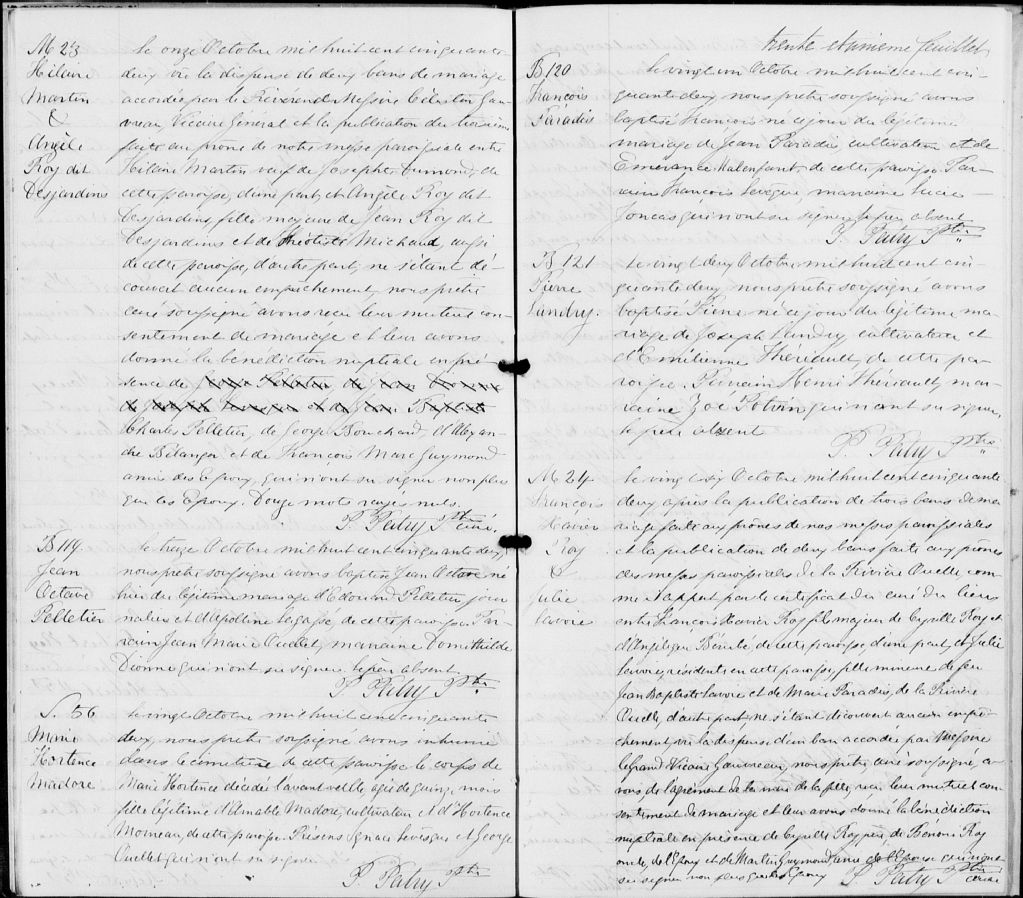 M 23
Hilaire
Martin
&
Angèle
Roy dit
Desjardins
Le onze Octobre mil huit cent cinquante
deux vu la dispense de deux bans de mariage
accordée par le Révérend Messire Célestin Gau-
vreau, Vicaire Général et la publication du troisième
faite au prône de notre messe paroissiale entre
Hilaire Martin veuf de Josephte Dumond, de
cette paroisse, d'une part, et Angèle Roy dit
Desjardins, fille majeure de Jean Roy dit
Desjardins et de Théotiste Michaud, aussi
de cette paroisse, d'autre part; ne s'étant dé-
couvert aucun empêchement, nous prêtre
curé soussigné avons reçu leur mutuel con-
sentement de mariage et leur avons
donné la bénédiction nuptiale en pré-
sence de George Pelletier de Jean
de Joseph et de Jean Baptiste
Charles Pelletier, de George Bouchard, d'Alexan-
dre Bélanger et de François Marc Guymond
amis des Epoux, qui n'ont su signer non plus
que les Epoux. Douze mots rayés nuls.
P. Patry Ptre
curé.
B 119.
Jean
Octave
Pelletier
Le treize Octobre mil huit cent cinquante deux,
nous prêtre soussigné avons baptisé Jean Octave né
hier du légitime mariage d'Edouard Pelletier, jour
nalier et d'Apolline Lagassé, de cette paroisse. Par-
rain Jean Marie Ouellet, marraine Domithilde
Dionne qui n'ont su signer le père absent.
P. Patry Ptre
S. 56
Marie
Hortence
Madore
Le vingt Octobre mil huit cent cinquante
deux, nous prêtre soussigné avons inhumé
dans le cimetière de cette paroisse le corps de
Marie Hortence décédée l'avant veille, agée de quinze mois
fille légitime d'Amable Madore, cultivateur et d'Hortence
Morneau, de cette paroisse. Présens Ignace Levesque et George
Ouellet qui n'ont su signer.
P. Patry Ptre
trente et unieme feuillet
B 120
François
Paradis
Le vingt un Octobre mil huit cent cin-
quante deux, nous prêtre soussigné avons
baptisé François né ce jour du légitime
mariage de Jean Paradis, cultivateur et de
Esmérance Malenfant, de cette paroisse. Par-
rain François Levêque, marraine Lucie
Joncas qui n'ont su signer le père absent
P. Patry Ptre
B 121
Pierre
Landry.
Le vingt deux Octobre mil huit cent cin-
quante deux, nous prêtre soussigné avons
baptisé Pierre né ce jour du légitime ma-
riage de Joseph Landry, cultivateur et
d'Emilienne Thériault, de cette pa-
roisse. Parrain Henri Thériault, mar-
raine Zoé Potvin qui n'ont su signer,
le père absent
P. Patry Ptre
M 24
François
Xavier
Roy
&
Julie
Lavoie
Le vingt six Octobre mil huit cent cinquante
deux, après la publication de trois bans de ma-
riage faite aux prônes de nos messes paroissiales
et la publication de deux bans faite aux prônes
des messes paroissiales de la Rivière Ouelle, com-
me il appert par le certificat du curé du lieu
entre François Xavier Roy, fils majeur de Cyrille Roy et
d'Angélique Bérubé, de cette paroisse, d'une part, et Julie
Lavoie, résidente en cette paroisse, fille mineure de feu
Jean Baptiste Lavoie et de Marie Paradis, de la Rivière
Ouelle, d'autre part; ne s'étant découvert aucun empê-
chement, vu la dispense d'un ban accordée par Messire
le Grand Vicaire Gauvreau, nous prêtre, curé soussigné, a-
vons de l'agrément de la mère de la fille, reçu leur mutuel con-
sentement de mariage et leur avons donné la bénédiction
nuptiale en présence de Cyrille Roy père, de Bénoni Roy
oncle, de l'Epoux et de Martin Guymond ami de l'Epouse qui n'ont
su signer non plus que les Epoux P. Patry Ptre
curé